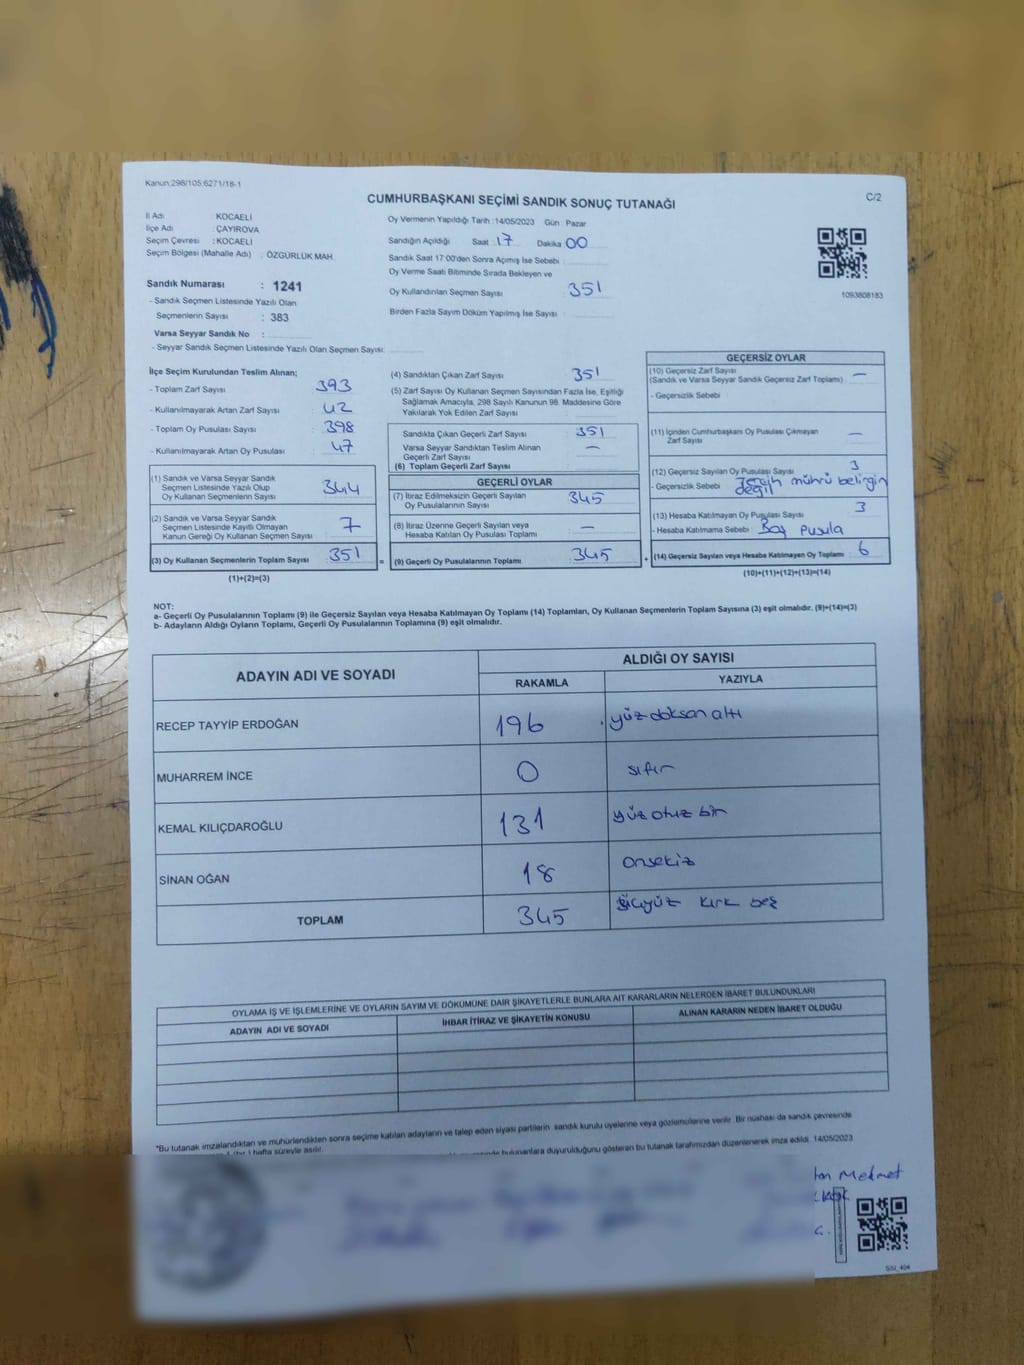 Kanun,298/105,6271/18-1
C/2
CUMHURBAŞKANI SEÇİMİ SANDIK SONUÇ TUTANAĞI
İl Adı : KOCAELİ
İlçe Adı : ÇAYIROVA
Seçim Çevresi : KOCAELİ
Seçim Bölgesi (Mahalle Adı) : ÖZGÜRLÜK MAH.
Sandık Numarası : 1241
- Sandık Seçmen Listesinde Yazılı Olan
Seçmenlerin Sayısı : 383
Varsa Seyyar Sandık No :
- Seyyar Sandık Seçmen Listesinde Yazılı Olan Seçmen Sayısı:
Oy Vermenin Yapıldığı Tarih :14/05/2023 Gün : Pazar
Sandığın Açıldığı Saat : 17 Dakika 00
Sandık Saat 17:00'den Sonra Açımış İse Sebebi :
Oy Verme Saati Bitiminde Sırada Bekleyen ve
Oy Kullandırılan Seçmen Sayısı : 351
Birden Fazla Sayım Döküm Yapılmış İse Sayısı :
1093808183
İlçe Seçim Kurulundan Teslim Alınan;
- Toplam Zarf Sayısı : 393
- Kullanılmayarak Artan Zarf Sayısı : 42
- Toplam Oy Pusulası Sayısı : 398
- Kullanılmayarak Artan Oy Pusulası : 47
(1) Sandık ve Varsa Seyyar Sandık
Seçmen Listesinde Yazılı Olup
Oy Kullanan Seçmenlerin Sayısı : 344
(2) Sandık ve Varsa Seyyar Sandık
Seçmen Listesinde Kayıtlı Olmayan
Kanun Gereği Oy Kullanan Seçmen Sayısı : 7
(3) Oy Kullanan Seçmenlerin Toplam Sayısı : 351
(1)+(2)=(3)
(4) Sandıktan Çıkan Zarf Sayısı : 351
(5) Zarf Sayısı Oy Kullanan Seçmen Sayısından Fazla İse, Eşitliği
Sağlamak Amacıyla, 298 Sayılı Kanunun 98. Maddesine Göre
Yakılarak Yok Edilen Zarf Sayısı :
Sandıkta Çıkan Geçerli Zarf Sayısı : 351
Varsa Seyyar Sandıktan Teslim Alınan
Geçerli Zarf Sayısı : —
(6) Toplam Geçerli Zarf Sayısı :
GEÇERLİ OYLAR
(7) İtiraz Edilmeksizin Geçerli Sayılan
Oy Pusulalarının Sayısı : 345
(8) İtiraz Üzerine Geçerli Sayılan veya
Hesaba Katılan Oy Pusulası Toplamı : —
= (9) Geçerli Oy Pusulalarının Toplamı : 345
GEÇERSİZ OYLAR
(10) Geçersiz Zarf Sayısı : —
(Sandık ve Varsa Seyyar Sandık Geçersiz Zarf Toplamı)
- Geçersizlik Sebebi :
(11) İçinden Cumhurbaşkanı Oy Pusulası Çıkmayan
Zarf Sayısı : —
(12) Geçersiz Sayılan Oy Pusulası Sayısı : 3
- Geçersizlik Sebebi : Tercih mührü belirgin
değil
(13) Hesaba Katılmayan Oy Pusulası Sayısı : 3
- Hesaba Katılmama Sebebi : Boş Pusula
+ (14) Geçersiz Sayılan veya Hesaba Katılmayan Oy Toplamı : 6
(10)+(11)+(12)+(13)=(14)
NOT:
a- Geçerli Oy Pusulalarının Toplamı (9) ile Geçersiz Sayılan veya Hesaba Katılmayan Oy Toplamı (14) Toplamları, Oy Kullanan Seçmenlerin Toplam Sayısına (3) eşit olmalıdır. (9)+(14)=(3)
b- Adayların Aldığı Oyların Toplamı, Geçerli Oy Pusulalarının Toplamına (9) eşit olmalıdır.
ADAYIN ADI VE SOYADI
ALDIĞI OY SAYISI
RAKAMLA YAZIYLA
RECEP TAYYİP ERDOĞAN 196 yüz doksan altı
MUHARREM İNCE 0 sıfır
KEMAL KILIÇDAROĞLU 131 yüz otuz bir
SİNAN OĞAN 18 onsekiz
TOPLAM 345 üçyüz kırk beş
OYLAMA İŞ VE İŞLEMLERİNE VE OYLARIN SAYIM VE DÖKÜMÜNE DAİR ŞİKAYETLERLE BUNLARA AİT KARARLARIN NELERDEN İBARET BULUNDUKLARI
ADAYIN ADI VE SOYADI İHBAR İTİRAZ VE ŞİKAYETİN KONUSU ALINAN KARARIN NEDEN İBARET OLDUĞU
*Bu tutanak imzalandıktan ve mühürlendikten sonra seçime katılan adayların ve talep eden siyasi partilerin sandık kurulu üyelerine veya gözlemcilerine verilir. Bir nüshası da sandık çevresinde
hafta süreyle asılır.
bulunanlara duyurulduğunu gösteren bu tutanak tarafımızdan düzenlenerek imza edildi. 14/05/2023
Mehmet